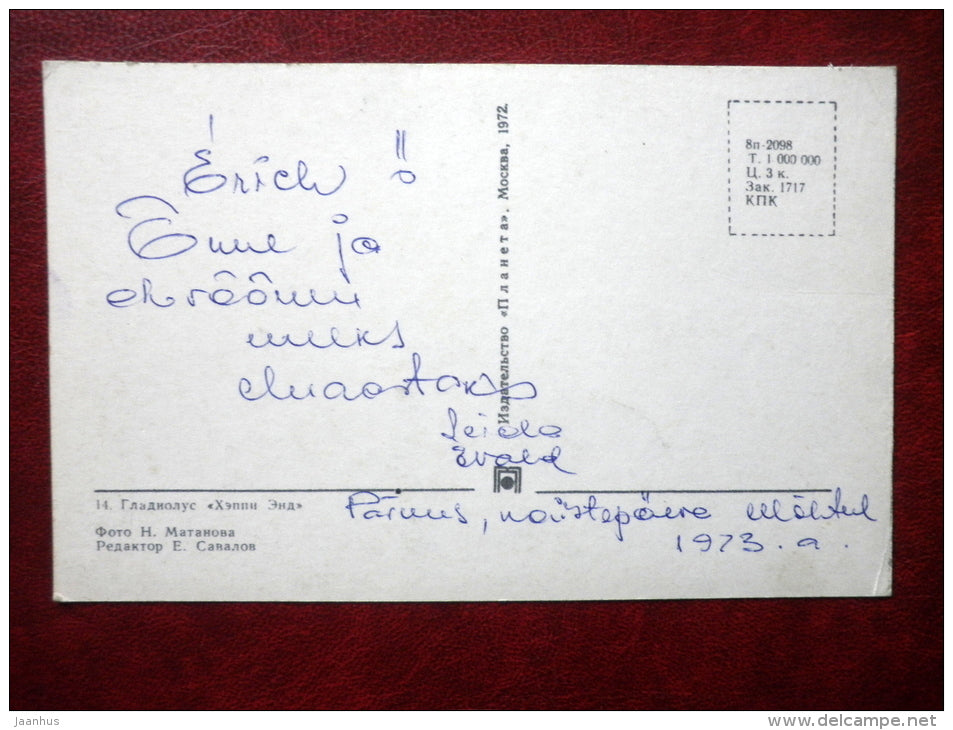 Erich!!
Õnne ja
elurõõmu
meeks
elluaastaks
Leida
Evald
Pärnus, naistepäeva õhtul
1973. a.
Издательство «Планета». Москва, 1972.
8п-2098
Т. 1 000 000
Ц. 3 к.
Зак. 1717
КПК
14. Гладиолус «Хэппи Энд»
Фото Н. Матанова
Редактор Е. Савалов
jaanhus
www.delcampe.net